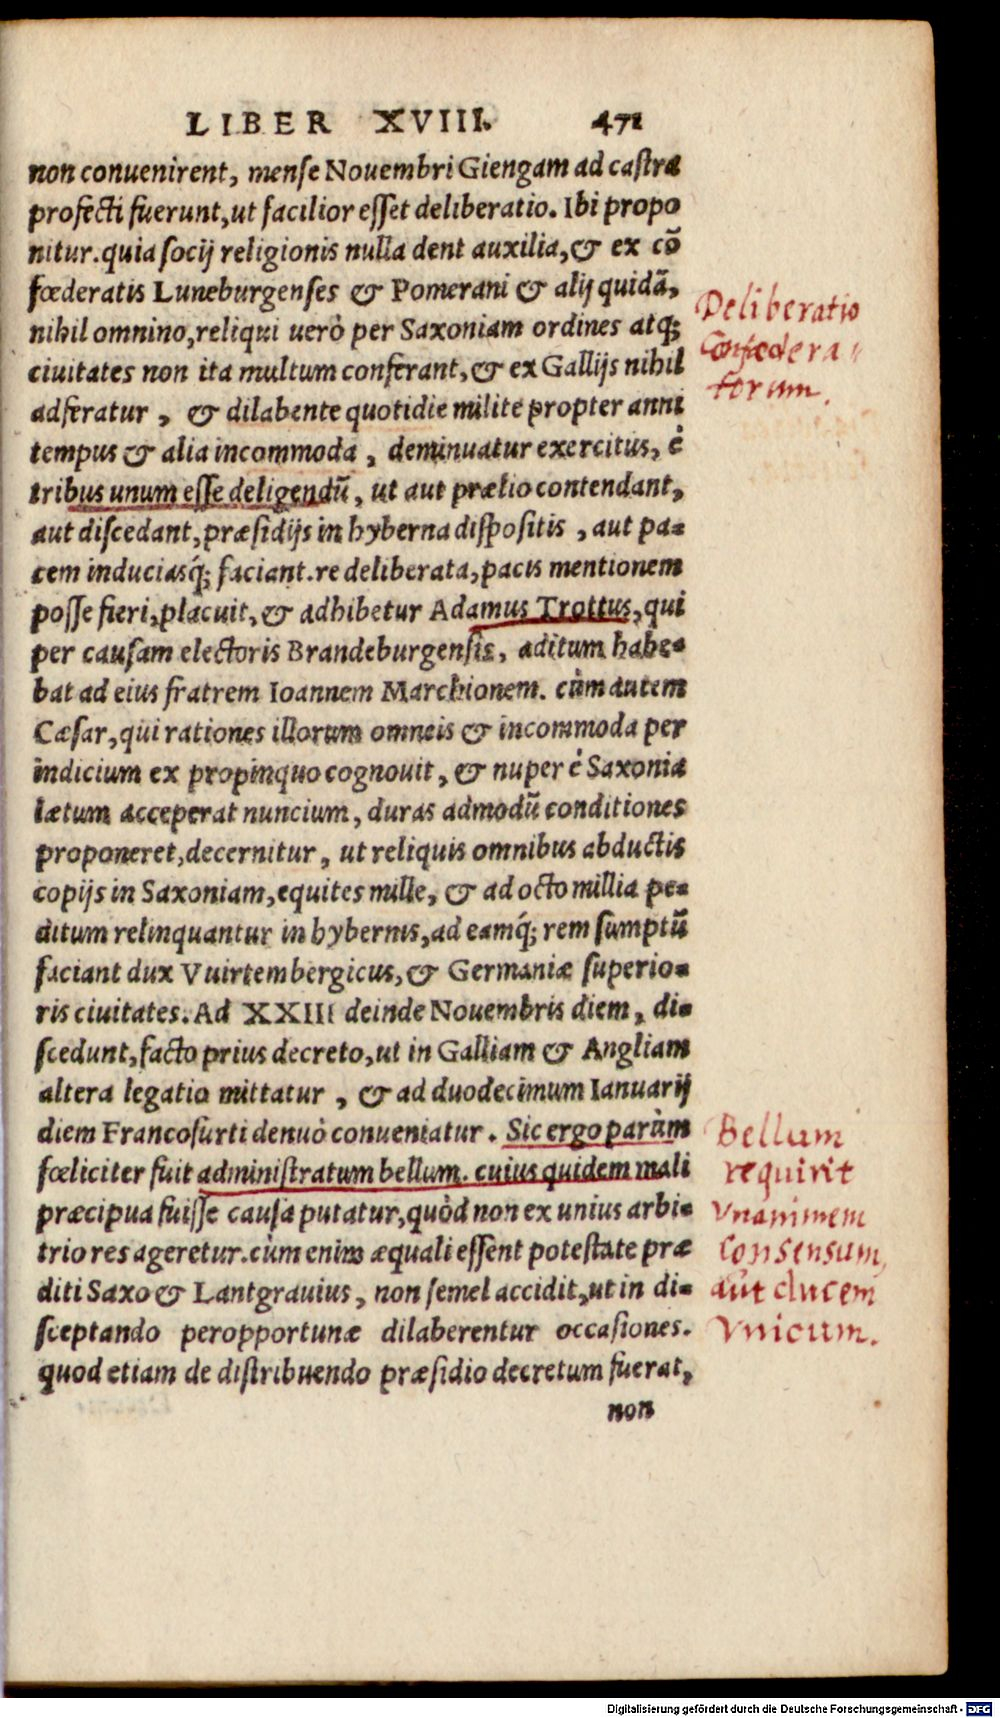 LIBER XVIII. 471
non conuenirent, mense Nouembri Giengam ad castra
profecti fuerunt, ut facilior esset deliberatio. Ibi propo
nitur. quia socij religionis nulla dent auxilia, & ex cō
fœderatis Luneburgenses & Pomerani & alij quidã,
nihil omnino, reliqui uerò per Saxoniam ordines atq;
ciuitates non ita multum conferant, & ex Gallijs nihil
adferatur, & dilabente quotidie milite propter anni
tempus & alia incommoda, deminuatur exercitus, è
tribus unum esse deligendũ, ut aut prælio contendant,
aut discedant, præsidijs in hyberna dispositis, aut pa-
cem induciasq́; faciant. re deliberata, pacis mentionem
posse fieri, placuit, & adhibetur Adamus Trottus, qui
per causam electoris Brandeburgensis, aditum habe-
bat ad eius fratrem Ioannem Marchionem. cùm autem
Cæsar, qui rationes illorum omneis & incommoda per
indicium ex propinquo cognouit, & nuper è Saxonia
lætum acceperat nuncium, duras admodũ conditiones
proponeret, decernitur, ut reliquis omnibus abductis
copijs in Saxoniam, equites mille, & ad octo millia pe-
ditum relinquantur in hybernis, ad eamq́; rem sumptũ
faciant dux Vuirtembergicus, & Germaniæ superio-
ris ciuitates. Ad XXIII deinde Nouembris diem, di-
scedunt, facto prius decreto, ut in Galliam & Angliam
altera legatio mittatur, & ad duodecimum Ianuarij
diem Francofurti denuò conueniatur. Sic ergo parùm
fœliciter fuit administratum bellum. cuius quidem mali
præcipua fuisse causa putatur, quòd non ex unius arbi-
trio res ageretur. cùm enim æquali essent potestate præ
diti Saxo & Lantgrauius, non semel accidit, ut in di-
sceptando peropportunæ dilaberentur occasiones.
quod etiam de distribuendo præsidio decretum fuerat,
non
Deliberatio
Confœdera-
torum.
Bellum
requirit
vnanimem
consensum,
aut ducem
vnicum.
Digitalisierung gefördert durch die Deutsche Forschungsgemeinschaft - DFG